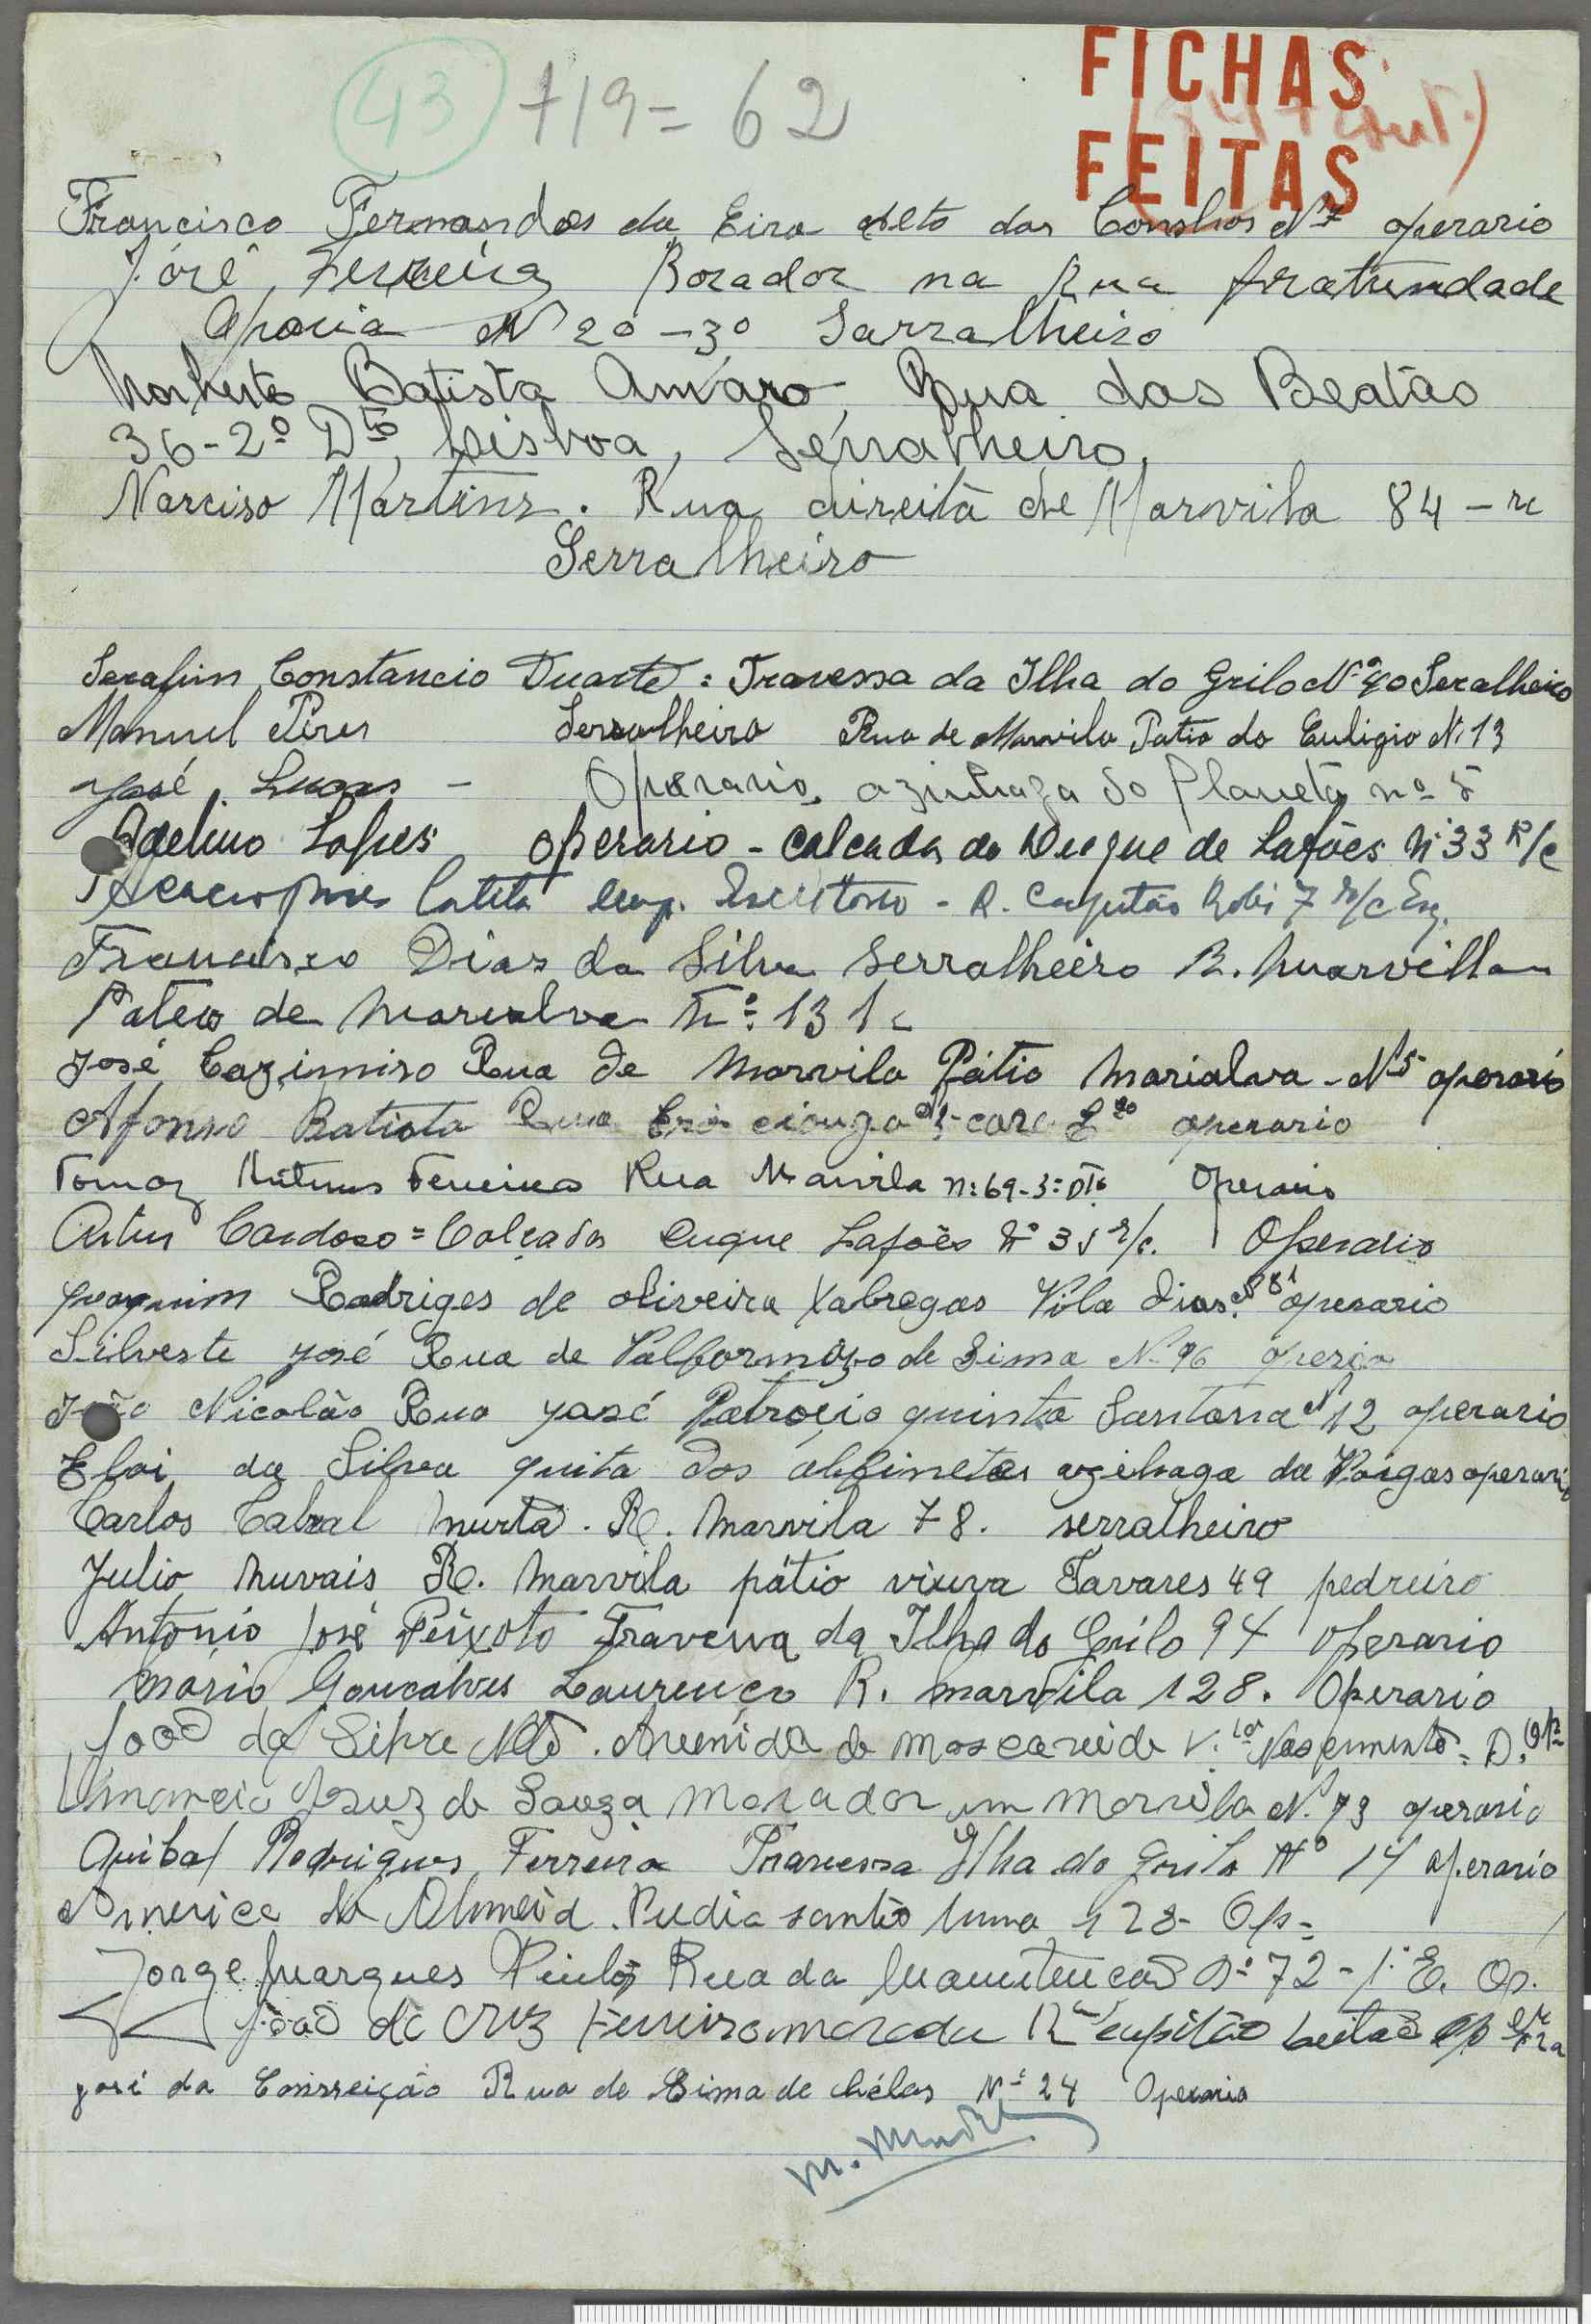 43 +19= 62
FICHAS
FEITAS
Francisco Fernandes da Eira alto dos Conchos Nº 7 operario
José Ferreira Borador na Rua fratundade
Oparia Nº 20-3º Sarralheiro
Norberto Batista Amaro, Rua dos Beatão
36-2º Dtº, Lisboa, Serralheiro,
Narciso Martins. Rua direita de Marvila 84 - rc
Serralheiro
Serafim Constancio Duarte = Travessa da Ilha do Grilo Nº 40 Seralheiro
Manuel Peres Serralheiro Rua de Marvila Patio do Euligio Nº 13
José Lucas - Operario, azinhaga do Planeta nº 5
Adelino Lopes operario - calcada do Duque de Lafões Nº 33 R/c
Emp. Escritorio - R. Capitão 7 r/c Esq.
Francisco Dias da Silva Serralheiro R. Marvilla
Pateo de Marialva Nº 13
José Cazimiro Rua de Marvila Pátio Marialva - Nº 5 operario
Afonso Batista Rua operario
Tomaz Antunes Ferreira Rua Marvila nº 69-3º Dtº Operario
Artur Cardoso = Calçada Duque Lafões Nº 35 r/c. Operario
Joaquim Rodriges de oliveira Xabregas Vila Dias Nº 81 operario
Silveste José Rua de Valformozo de Sima Nº 96
João Nicolão Rua José Patrocio quinta Santana Nº 12 operario
Eloi da Silva quita dos alfinetes azilhaga da Vargas operario
Carlos Cabral Murta. R. Marvila 78. serralheiro
Julio Nuvais R. Marvila pátio viuva Tavares 49 pedreiro
Antonio José Peixoto Travessa da Ilha do Grilo 94 operario
Mario Goncalves Laurenço R. Marvila 128. Operario
João da Neto. Avenida de Moscavide V. Nascimento = D. Op
Jesuz de Souza Morador em Marvila Nº 73 operario
Anibal Rodrigues Ferreira Travessa Ilha do Grilo Nº 14 operario
Americo de Almeid. 128 - Op =
Jorge Marques Pinto Rua da Manutencão Nº 72 - 1º E. Op.
João da Cruz Ferreira morada Rua capitão Leitão
José da Consseição Rua de Sima de Chélas Nº 24 Operario